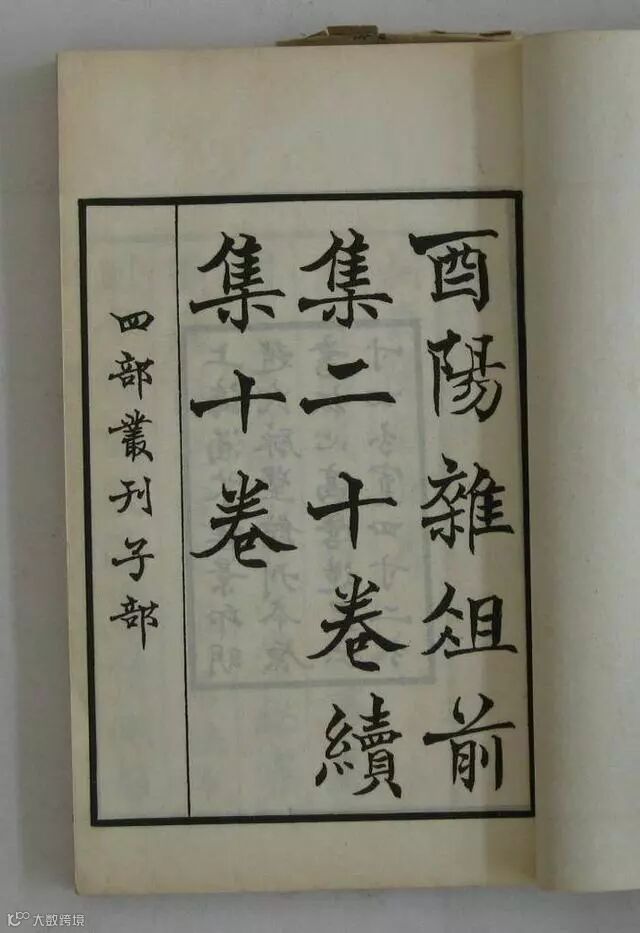 酉陽雜俎前
集二十卷續
集十卷
四部叢刊子部
大数跨境